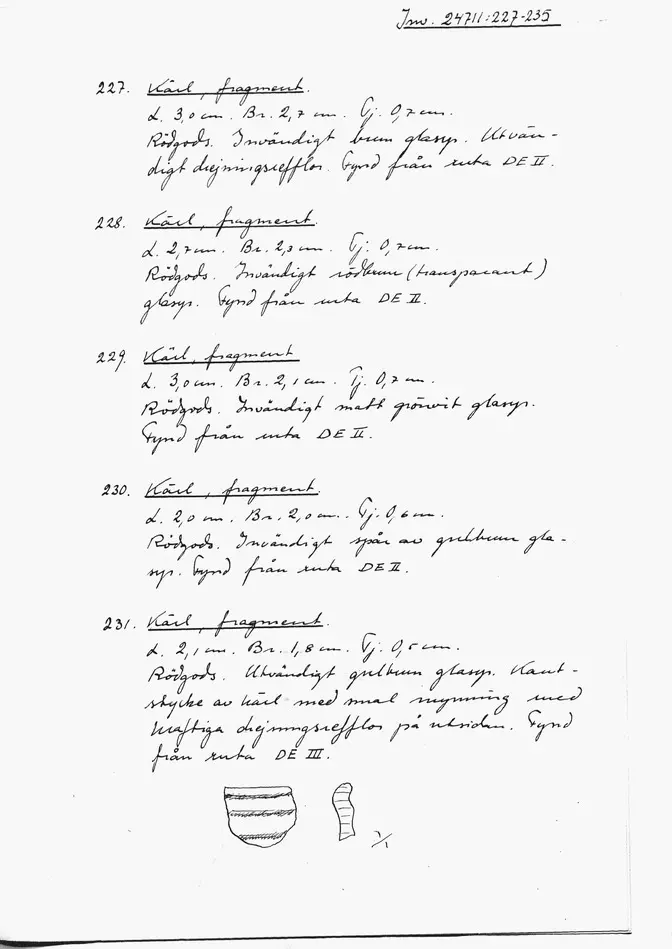 Inv. 24711:227-235
227. Kärl, fragment.
L. 3,0 cm. Br. 2,7 cm. Tj. 0,7 cm.
Rödgods. Invändigt brun glasyr. Utvän-
digt drejningsrefflor. Fynd från ruta DE II.
228. Kärl, fragment.
L. 2,7 cm. Br. 2,3 cm. Tj. 0,7 cm.
Rödgods. Invändigt rödbrun (transparant)
glasyr. Fynd från ruta DE II.
229. Kärl, fragment
L. 3,0 cm. Br. 2,1 cm. Tj. 0,7 cm.
Rödgods. Invändigt matt grönvit glasyr.
Fynd från ruta DE II.
230. Kärl, fragment.
L. 2,0 cm. Br. 2,0 cm. Tj. 0,6 cm.
Rödgods. Invändigt spår av gulbrun gla-
syr. Fynd från ruta DE II.
231. Kärl, fragment.
L. 2,1 cm. Br. 1,8 cm. Tj. 0,5 cm.
Rödgods. Utvändigt gulbrun glasyr. Kant-
stycke av kärl med smal mynning med
kraftiga drejningsrefflor på utsidan. Fynd
från ruta DE III.
1/1